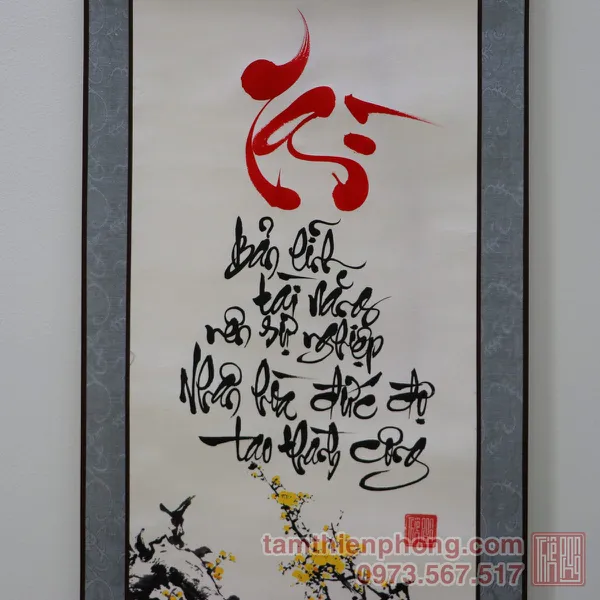 Bản lĩnh
tài năng
nên sự nghiệp
Nhân hòa đức độ
tạo thành công
tamthienphong.com.vn
0973.567.517